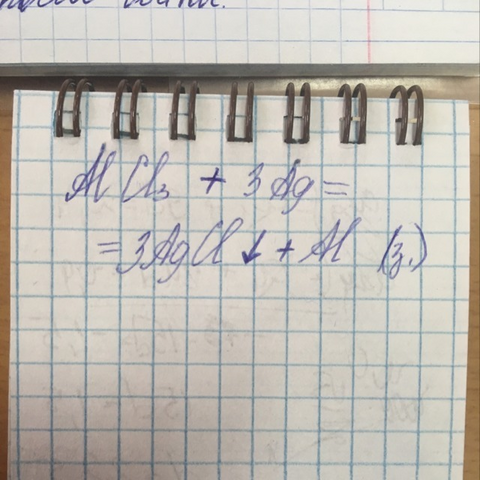 AlCl₃ + 3Ag =
= 3AgCl↓ + Al (з.)